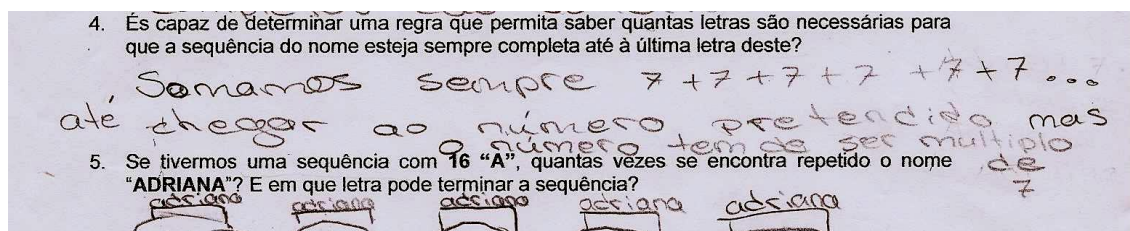 4. És capaz de determinar uma regra que permita saber quantas letras são necessárias para
que a sequência do nome esteja sempre completa até à última letra deste?
Somamos sempre 7 + 7 + 7 + 7 + 7 + 7 ...
até chegar ao número pretendido mas
o número tem de ser múltiplo
de
7
5. Se tivermos uma sequência com 16 “A”, quantas vezes se encontra repetido o nome
“ADRIANA”? E em que letra pode terminar a sequência?
adriana adriana adriana adriana adriana